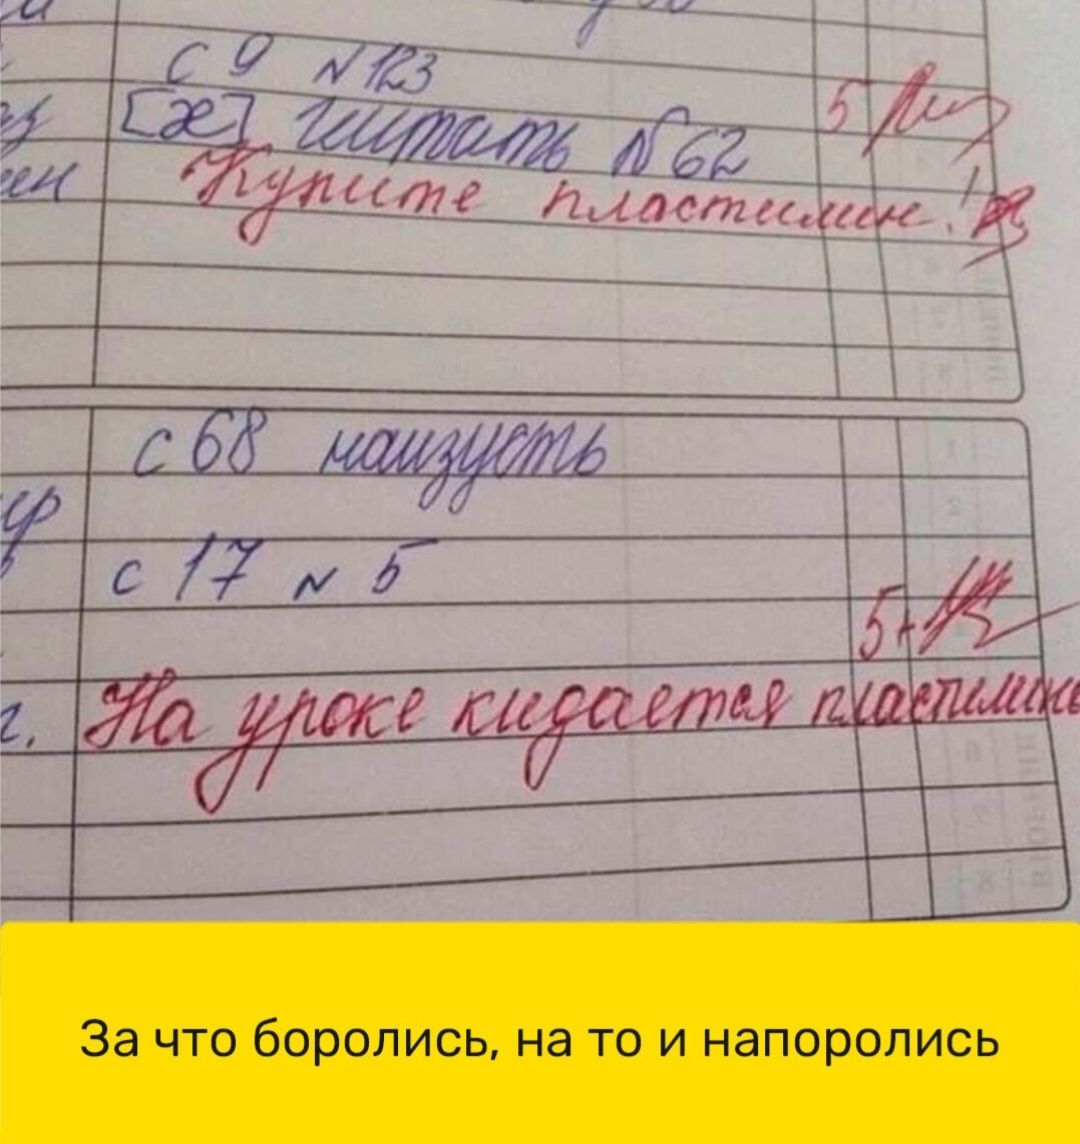 с 9 №123
[ж] читать №62
5
Купите пластилин!
с 68 наизусть
с 17 № 5
5+
На уроке кидается пластилин
За что боролись, на то и напоролись